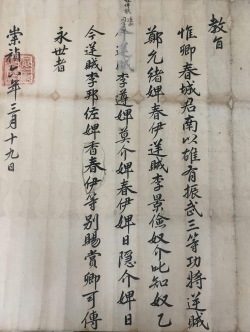 教旨
惟卿春城君南以雄有振武三等功將逆賊
鄭元緖婢春伊逆賊李景儉奴介叱知奴乙
逆賊李婢莫介婢春伊婢日隱介婢日
今逆賊李那佐婢香春伊等別賜賞卿可傳
永世者
崇禎六年三月十九日